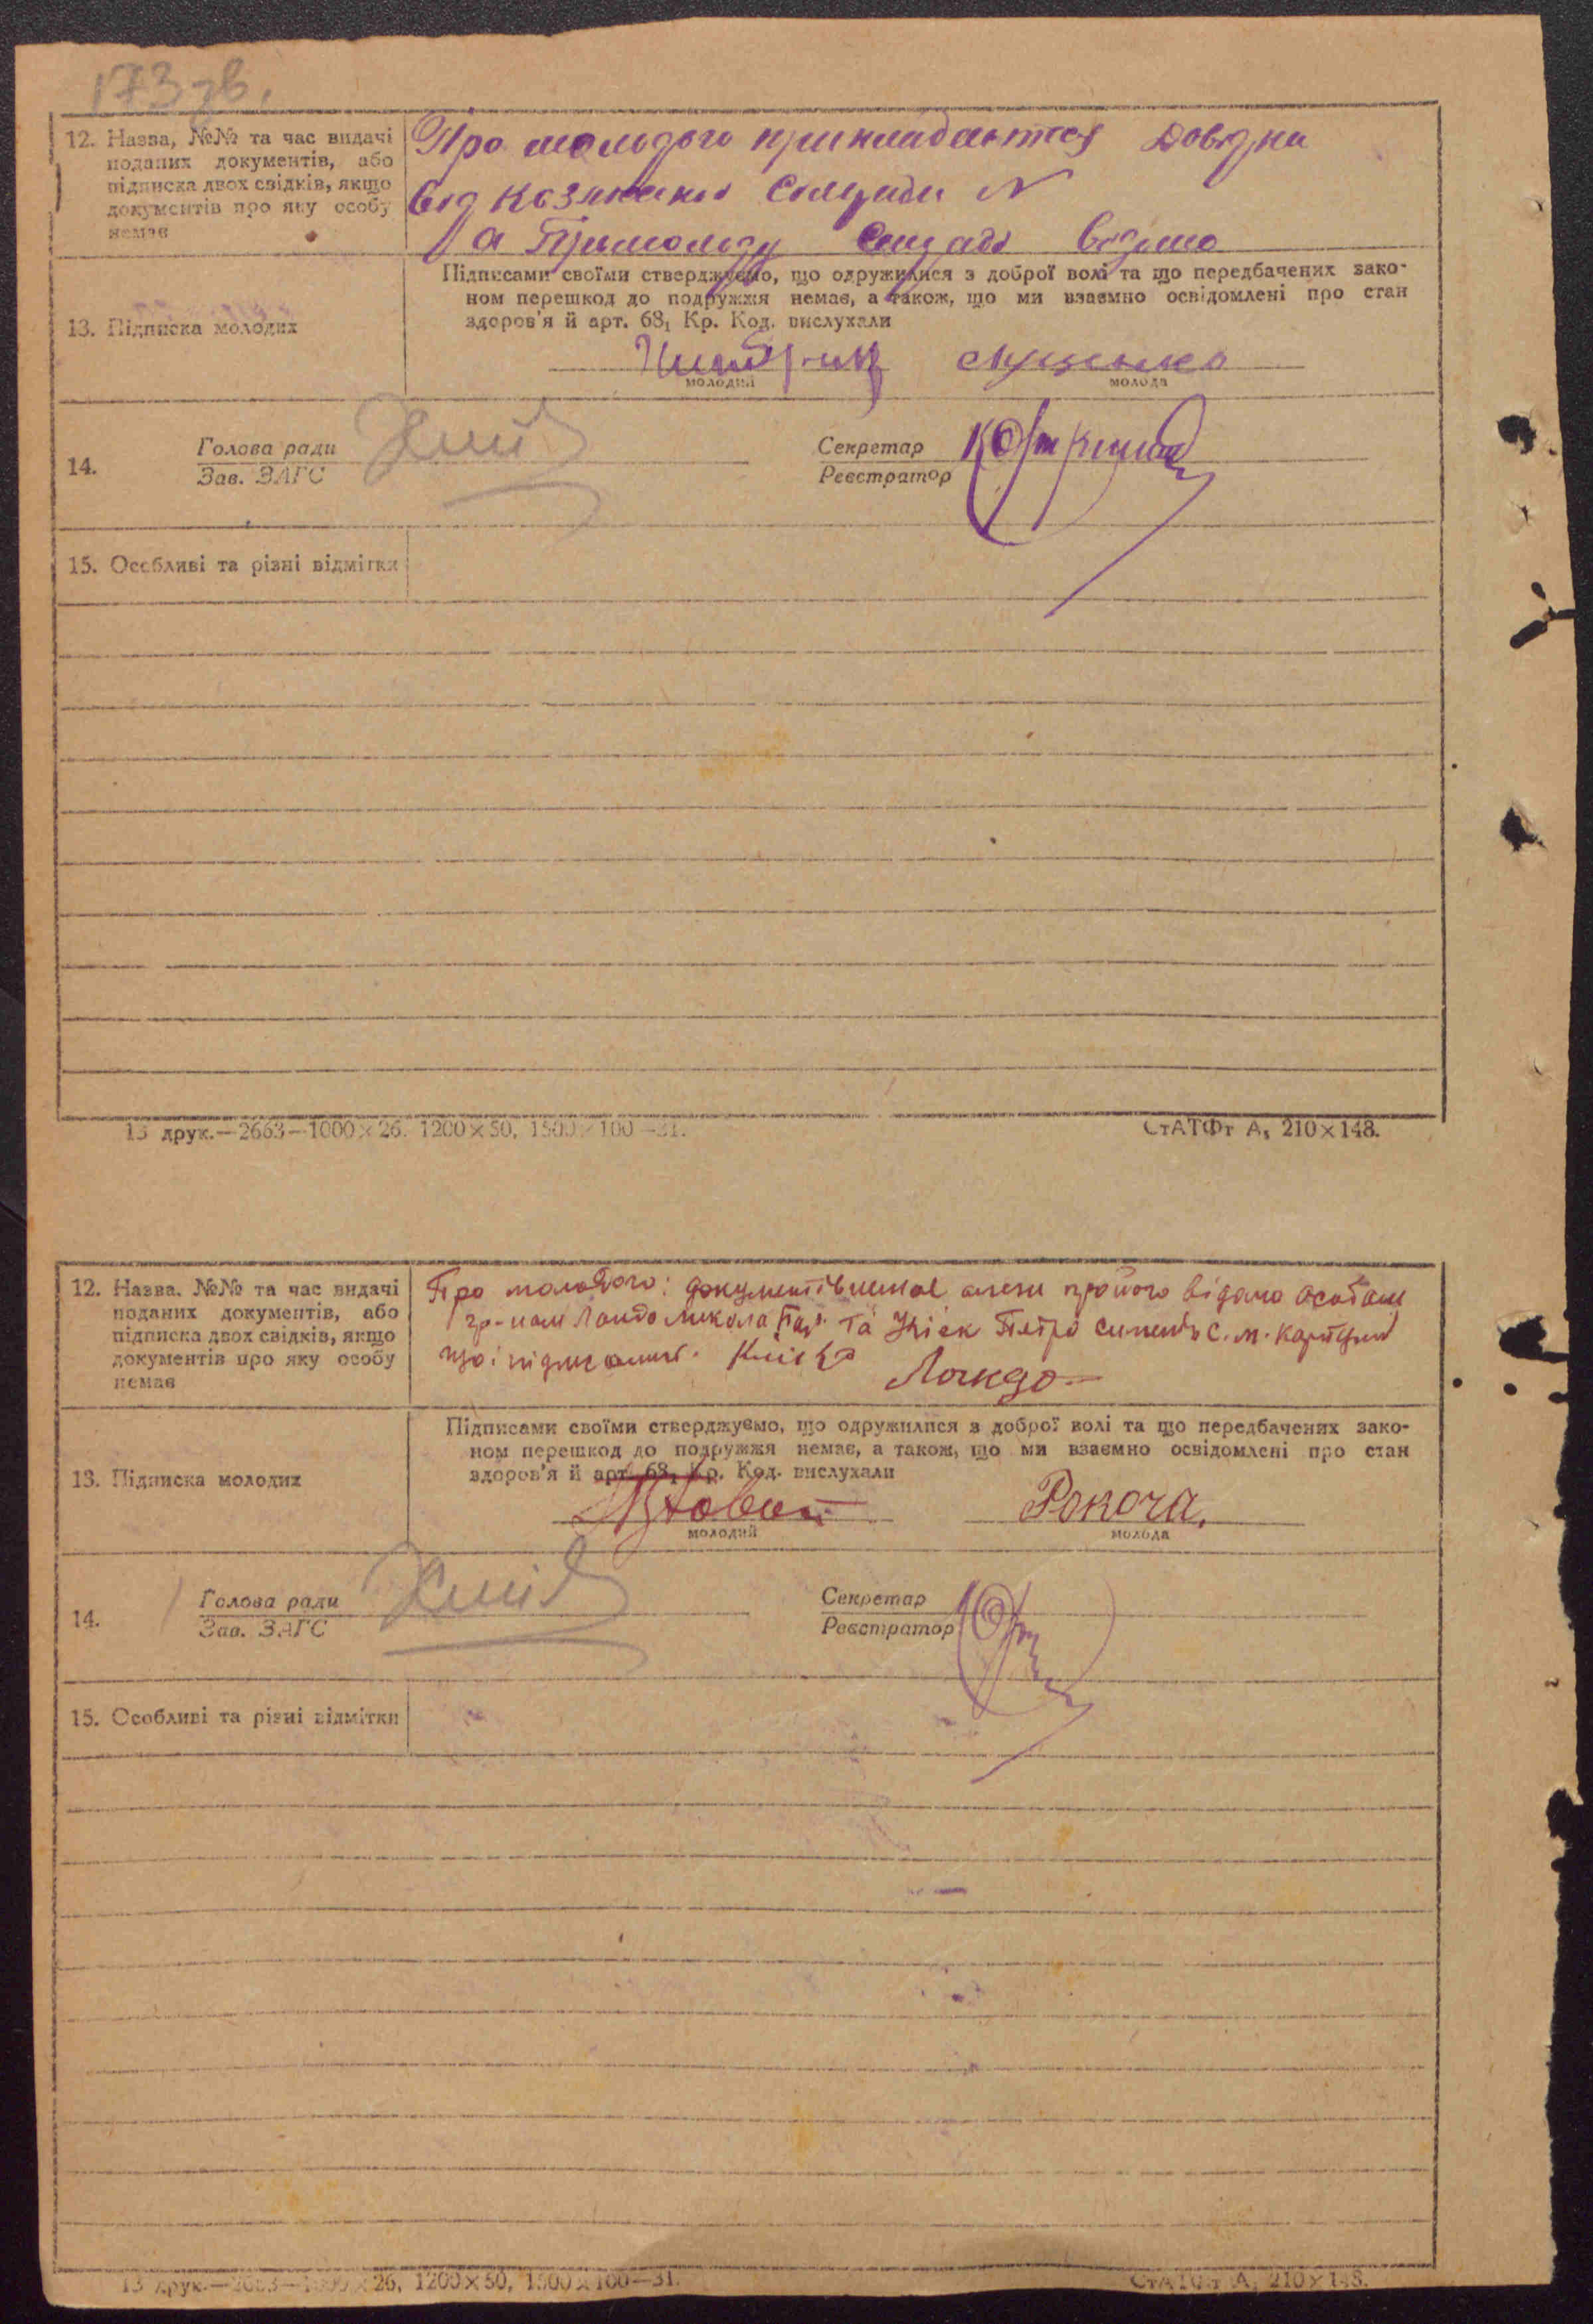 173 зв.
12. Назва, №№ та час видачі
поданих документів, або
підписка двох свідків, якщо
документів про яку особу
немає
Про молодого прикладається Довідка
від сільради N
а про молоду сільраді відомо
13. Підписка молодих
Підписами своїми стверджуємо, що одружилися з доброї волі та що передбачених зако-
ном перешкод до подружжя немає, а також, що ми взаємно освідомлені про стан
здоров'я й арт. 68₁ Кр. Код. вислухали
молодий
молода
14.
Голова ради
Зав. ЗАГС
Секретар
Реєстратор
15. Особливі та різні відмітки
13 друк.—2663—1000×26. 1200×50, 1500×100—31.
СтАТФт А₅ 210×148.
12. Назва, №№ та час видачі
поданих документів, або
підписка двох свідків, якщо
документів про яку особу
немає
Про молодого: документів немає про його відомо особам
гр-нам Ландо Микола та Петро с. м.
що і підписали.
Ландо
13. Підписка молодих
Підписами своїми стверджуємо, що одружилися з доброї волі та що передбачених зако-
ном перешкод до подружжя немає, а також, що ми взаємно освідомлені про стан
здоров'я й арт. 68₁ Кр. Код. вислухали
Рокоча.
молодий
молода
14.
Голова ради
Зав. ЗАГС
Секретар
Реєстратор
15. Особливі та різні відмітки
13 друк.—2663—1000×26, 1200×50, 1500×100—31.
СтАТФт А₅ 210×148.